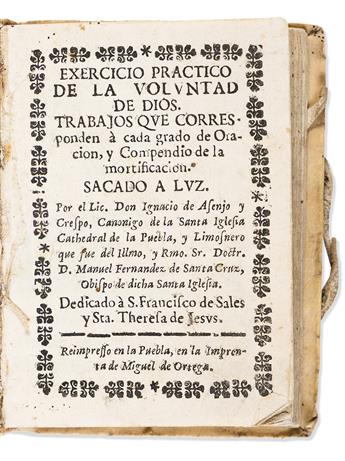 EXERCICIO PRACTICO
DE LA VOLVNTAD
DE DIOS.
TRABAJOS QVE CORRES-
ponden à cada grado de Ora-
cion, y Compendio de la
mortificacion.
SACADO A LVZ.
Por el Lic. Don Ignacio de Asenjo y
Crespo, Canonigo de la Santa Iglesia
Cathedral de la Puebla, y Limosnero
que fue del Illmo, y Rmo. Sr. Doctr.
D. Manuel Fernandez de Santa Cruz,
Obispo de dicha Santa Iglesia.
Dedicado à S. Francisco de Sales
y Sta. Theresa de Jesvs.
Reimpresso en la Puebla, en la Impren-
ta de Miguel de Ortega.